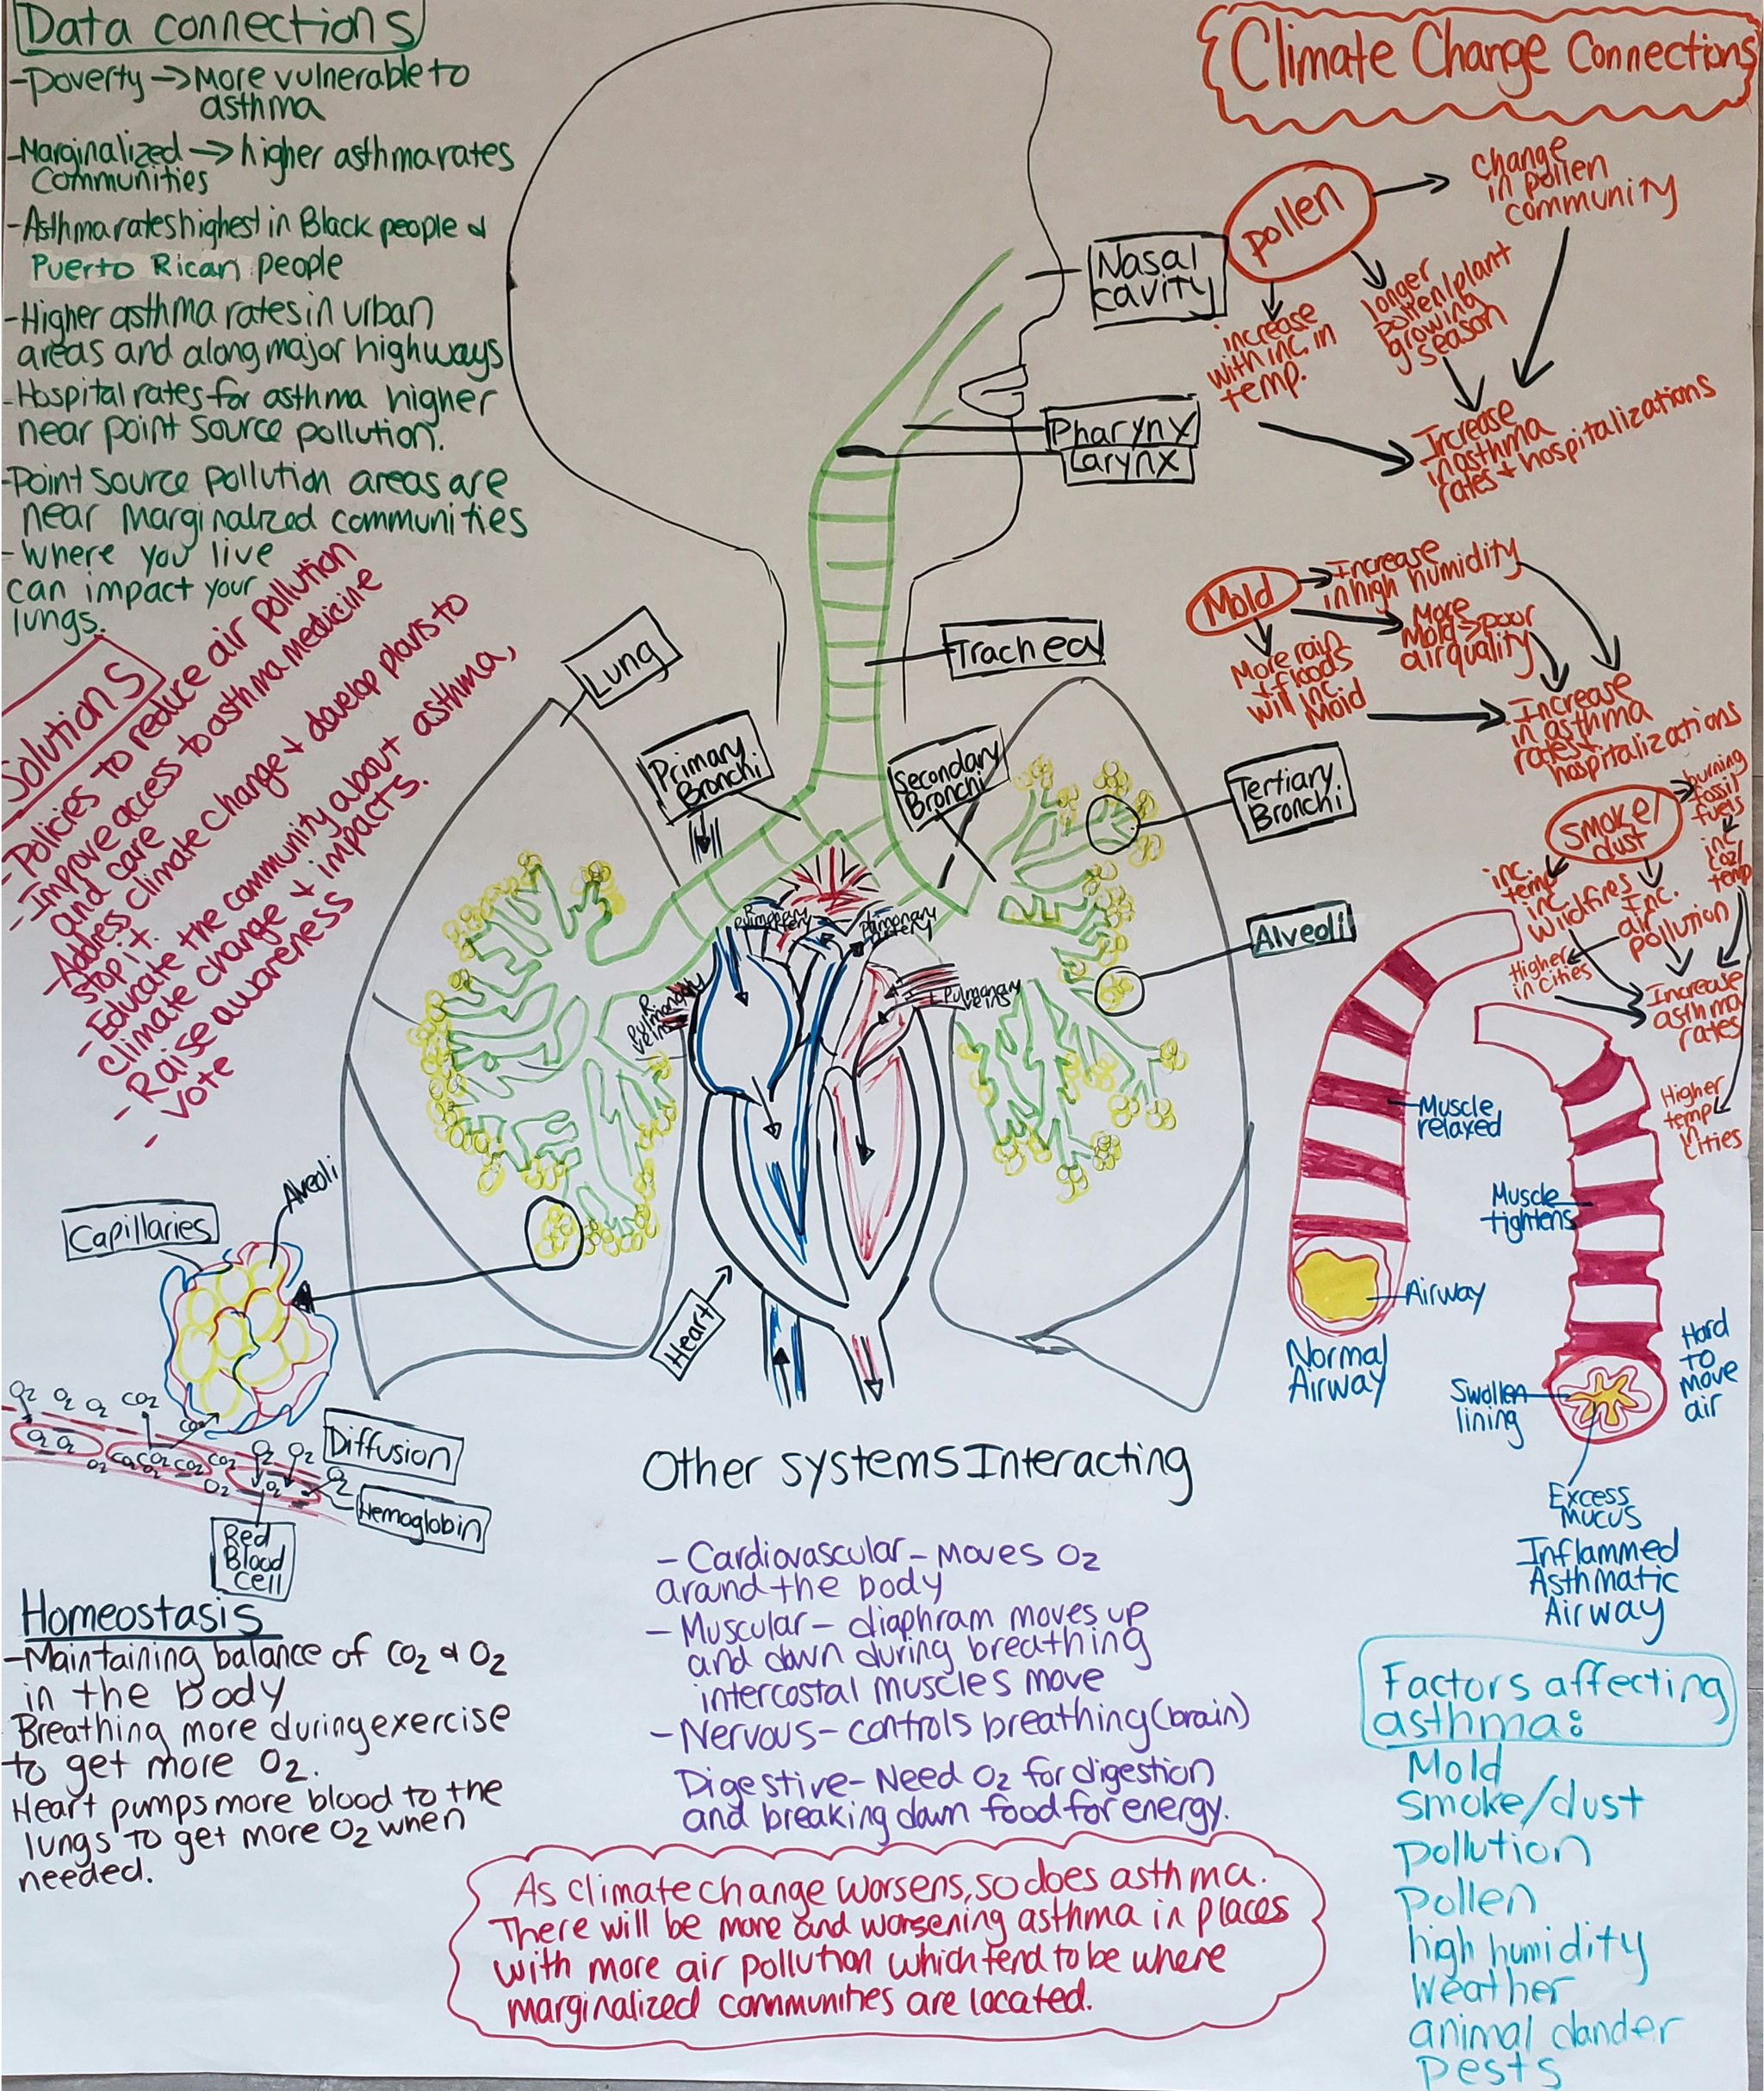 Data connections
-Poverty → More vulnerable to
asthma
-Marginalized → higher asthma rates
Communities
-Asthma rates highest in Black people &
Puerto Rican people
-Higher asthma rates in urban
areas and along major highways
-Hospital rates for asthma higher
near point source pollution.
-Point source pollution areas are
near marginalized communities
-Where you live
can impact your
lungs.
Solutions
-Policies to reduce air pollution
-Improve access to asthma medicine
and care
-Address climate change & develop plans to
stop it.
-Educate the community about asthma,
climate change & impacts.
-Raise awareness
-vote
Climate Change Connections
pollen
change
in pollen
community
longer
pollen/plant
growing
season
increase
with inc. in
temp.
Increase
in asthma
rates & hospitalizations
Mold
Increase
in high humidity
More
Mold → poor
air quality
More rain
& floods
will inc.
Mold
Increase
in asthma
rates &
hospitalizations
smoke/
dust
burning
fossil
fuels
inc.
CO2/
temp
inc.
temp
inc
wildfires
Inc.
air
pollution
Higher
in cities
Increase
asthma
rates
Higher
temp
in
cities
Nasal
cavity
Pharynx
Larynx
Trachea
Lung
Primary
Bronchi
Secondary
Bronchi
Tertiary
Bronchi
Alveoli
R
Pulmonary
artery
Pulmonary
artery
R.
Pulmonary
veins
L Pulmonary
veins
Heart
Muscle
relaxed
Airway
Normal
Airway
Muscle
tightens
Swollen
lining
Hard
to
move
air
Excess
Mucus
Inflammed
Asthmatic
Airway
Alveoli
Capillaries
O2 O2 O2 CO2
CO2
O2 O2
O2
CO2 CO2 CO2 CO2
O2
O2 O2
O2
O2
O2
Diffusion
Hemoglobin
Red
Blood
Cell
Homeostasis
-Maintaining balance of CO2 & O2
in the body
Breathing more during exercise
to get more O2.
Heart pumps more blood to the
lungs to get more O2 when
needed.
Other systems Interacting
-Cardiovascular- Moves O2
around the body
-Muscular- diaphram moves up
and down during breathing
intercostal muscles move
-Nervous- controls breathing (brain)
Digestive- Need O2 for digestion
and breaking down food for energy.
As climate change worsens, so does asthma.
There will be more and worsening asthma in places
with more air pollution which tend to be where
marginalized communities are located.
Factors affecting
asthma:
Mold
smoke/dust
pollution
pollen
high humidity
Weather
animal dander
pests